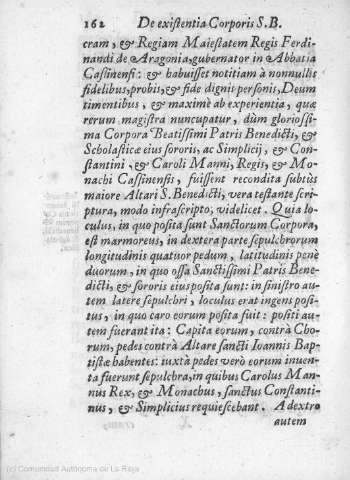 162 De existentia Corporis S.B.
cram, & Regiam Maiestatem Regis Ferdi-
nandi de Aragonia, gubernator in Abbatia
Cassinensi: & habuisset notitiam à nonnullis
fidelibus, probis, & fide dignis personis, Deum
timentibus, & maximè ab experientia, quæ
rerum magistra nuncupatur, dùm gloriosis-
sima Corpora Beatissimi Patris Benedicti, &
Scholasticæ eius sororis, ac Simplicij, & Con-
stantini, & Caroli Manni, Regis, & Mo-
nachi Cassinensis, fuissent recondita subtùs
maiore Altari S. Benedicti, vera testante scri-
ptura, modo infrascripto, videlicet. Quia lo-
culus, in quo posita sunt Sanctorum Corpora,
est marmoreus, in dextera parte sepulchrorum
longitudinis quatuor pedum, latitudinis penè
duorum, in quo ossa Sanctissimi Patris Bene-
dicti, & sororis eius posita sunt: in sinistro au-
tem latere sepulchri, loculus erat ingens posi-
tus, in quo caro eorum posita fuit: positi au-
tem fuerant ita: Capita eorum, contrà Cho-
rum, pedes contrà Altare sancti Ioannis Bap-
tistæ habentes: iuxtà pedes verò eorum inuen-
ta fuerunt sepulchra, in quibus Carolus Man-
nus Rex, & Monachus, sanctus Constanti-
nus, & Simplicius requiescebant. A dextro
autem
(c) Comunidad Autónoma de La Rioja